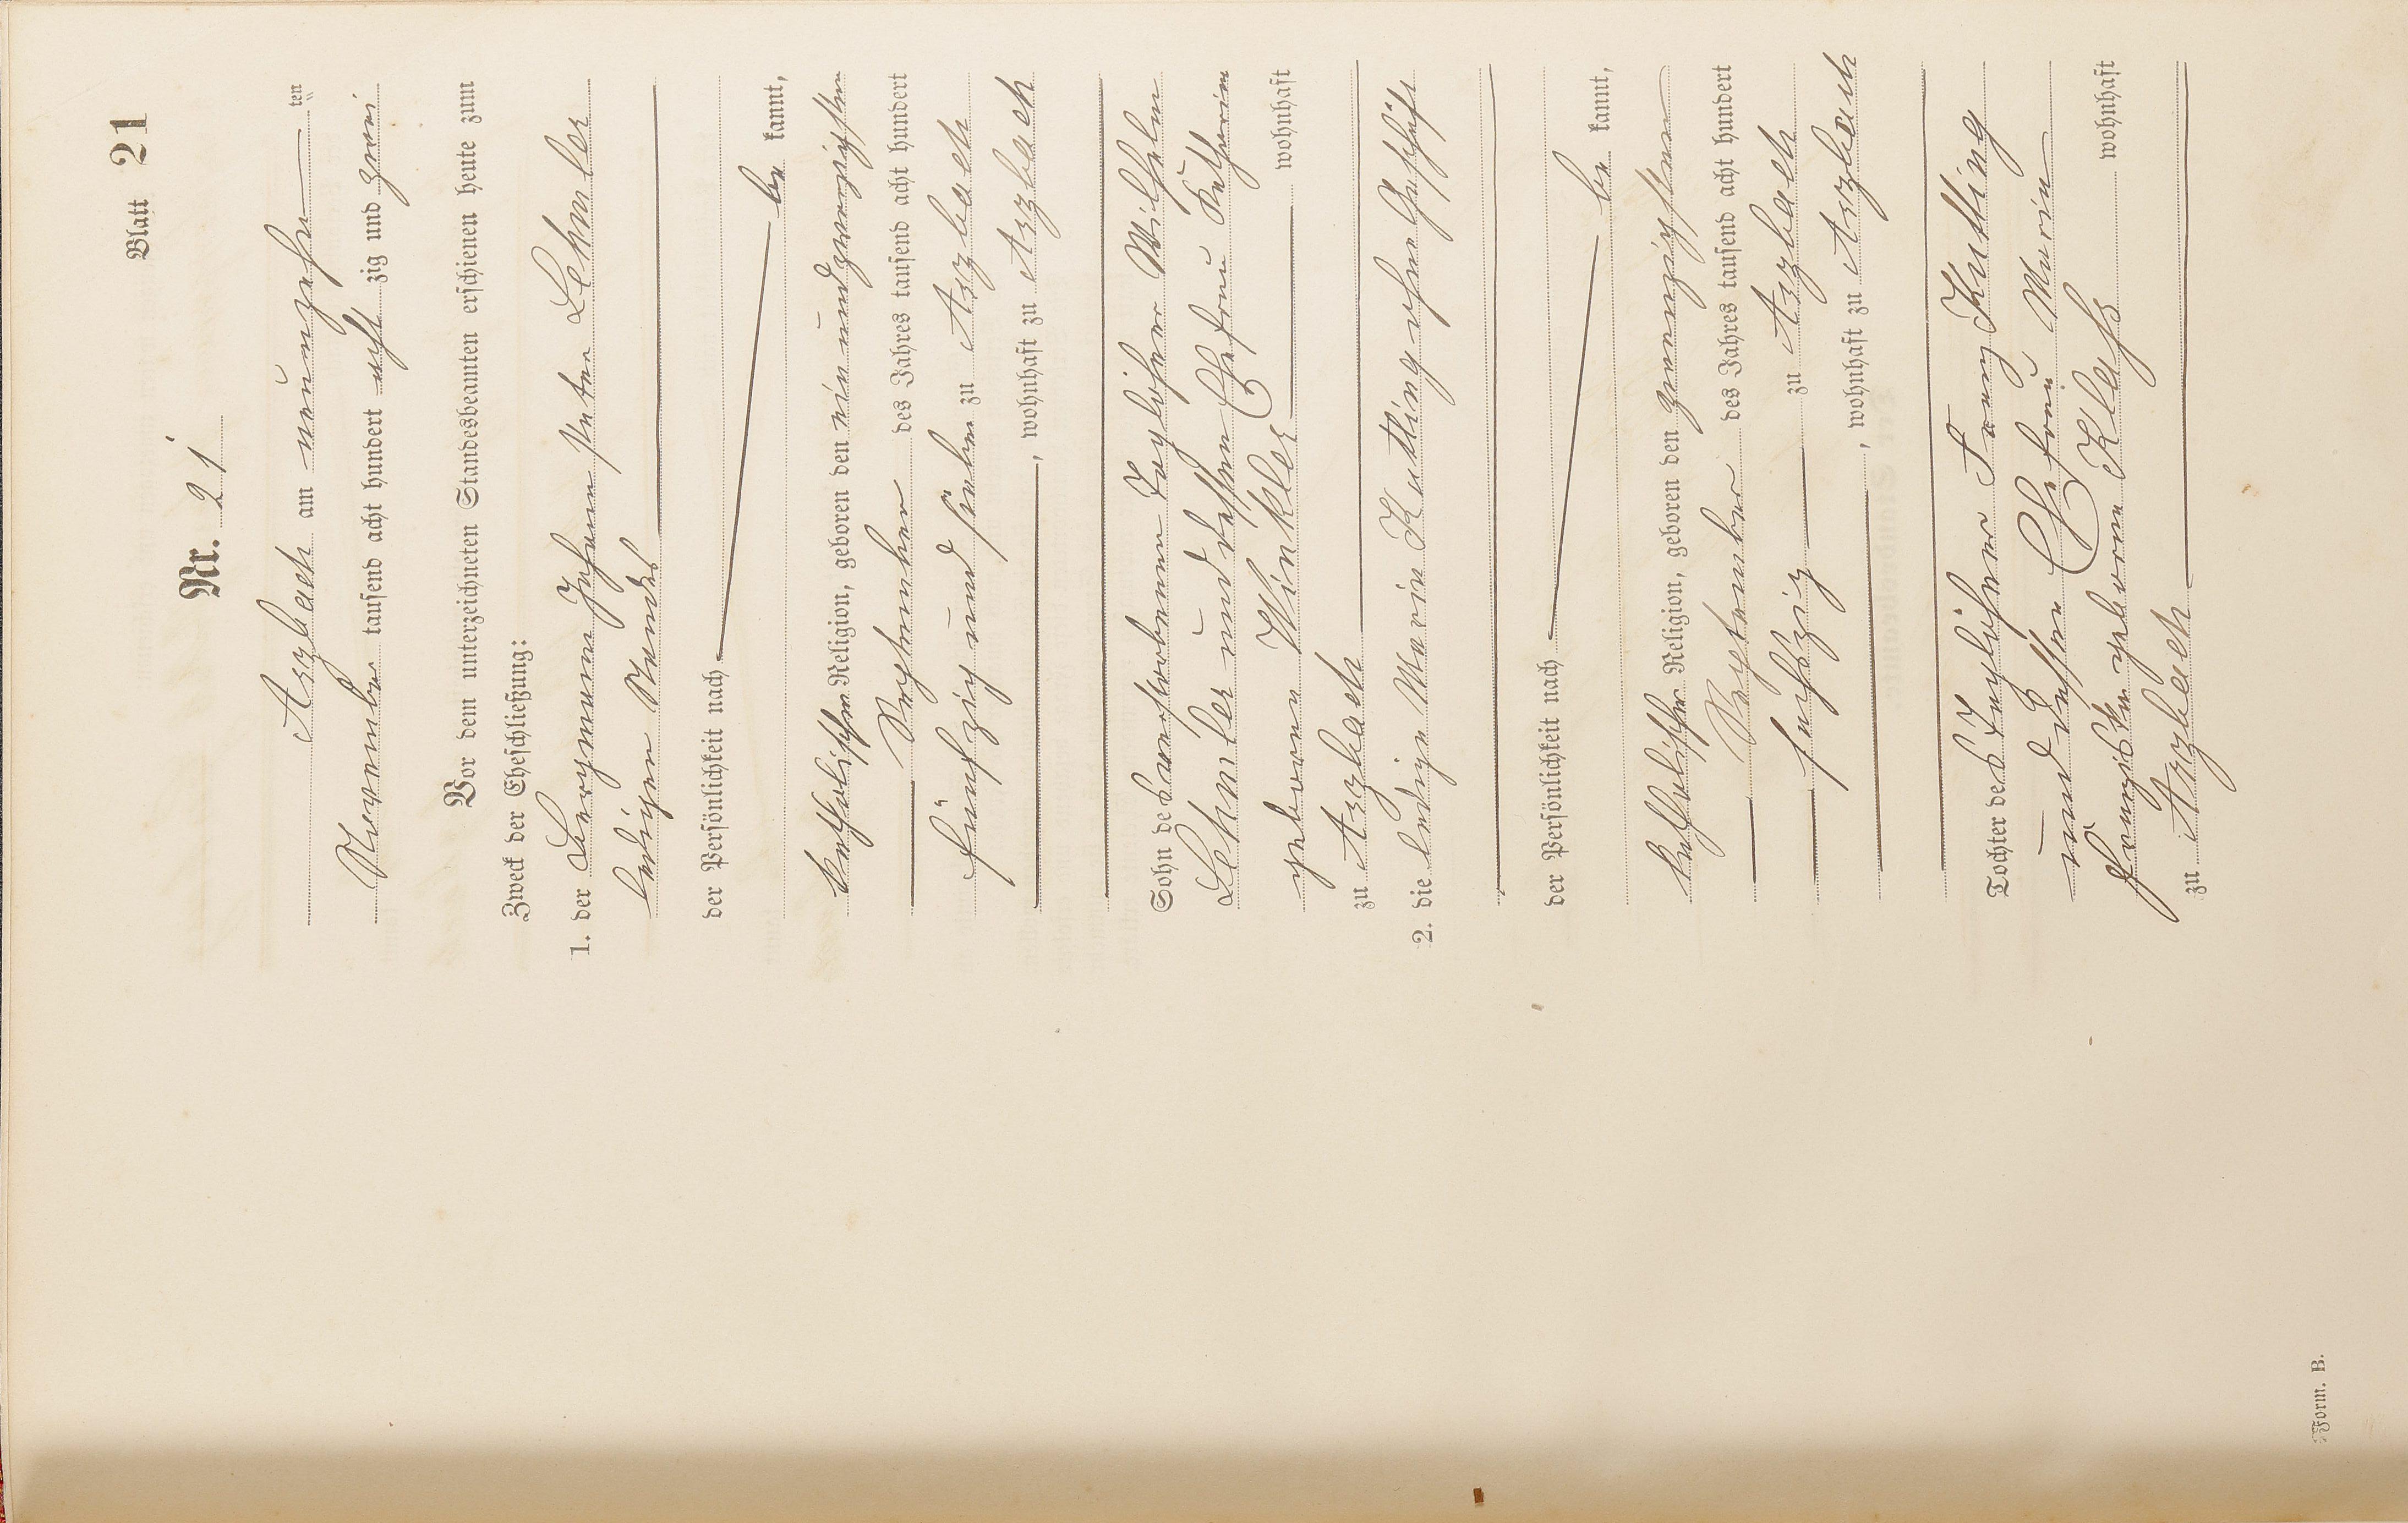 Blatt 21
Nr. 21
Arzbach am neunzehn ten
November tausend acht hundert acht zig und zwei
Vor dem unterzeichneten Standesbeamten erschienen heute zum
Zweck der Eheschließung:
1. der Bergmann Johann Peter Lehmler
ledigen Standes
der Persönlichkeit nach
be kannt,
katholischer Religion, geboren den ein und zwanzigsten
September des Jahres tausend acht hundert
fünfzig und sieben zu Arzbach
, wohnhaft zu Arzbach
Sohn des verstorbenen Taglöhner Wilhelm
Lehmler und dessen Ehefrau Katharina
geborene Winkler wohnhaft
zu Arzbach
2. die ledige Maria Kutting ohne Geschäft
der Persönlichkeit nach
be kannt,
katholischer Religion, geboren den zwanzigsten
September des Jahres tausend acht hundert
sechszig zu Arzbach
, wohnhaft zu Arzbach
Tochter des Taglöhner Franz Kutting
und dessen Ehefrau Maria
Franziska geborene Klaß wohnhaft
zu Arzbach
Form. B.